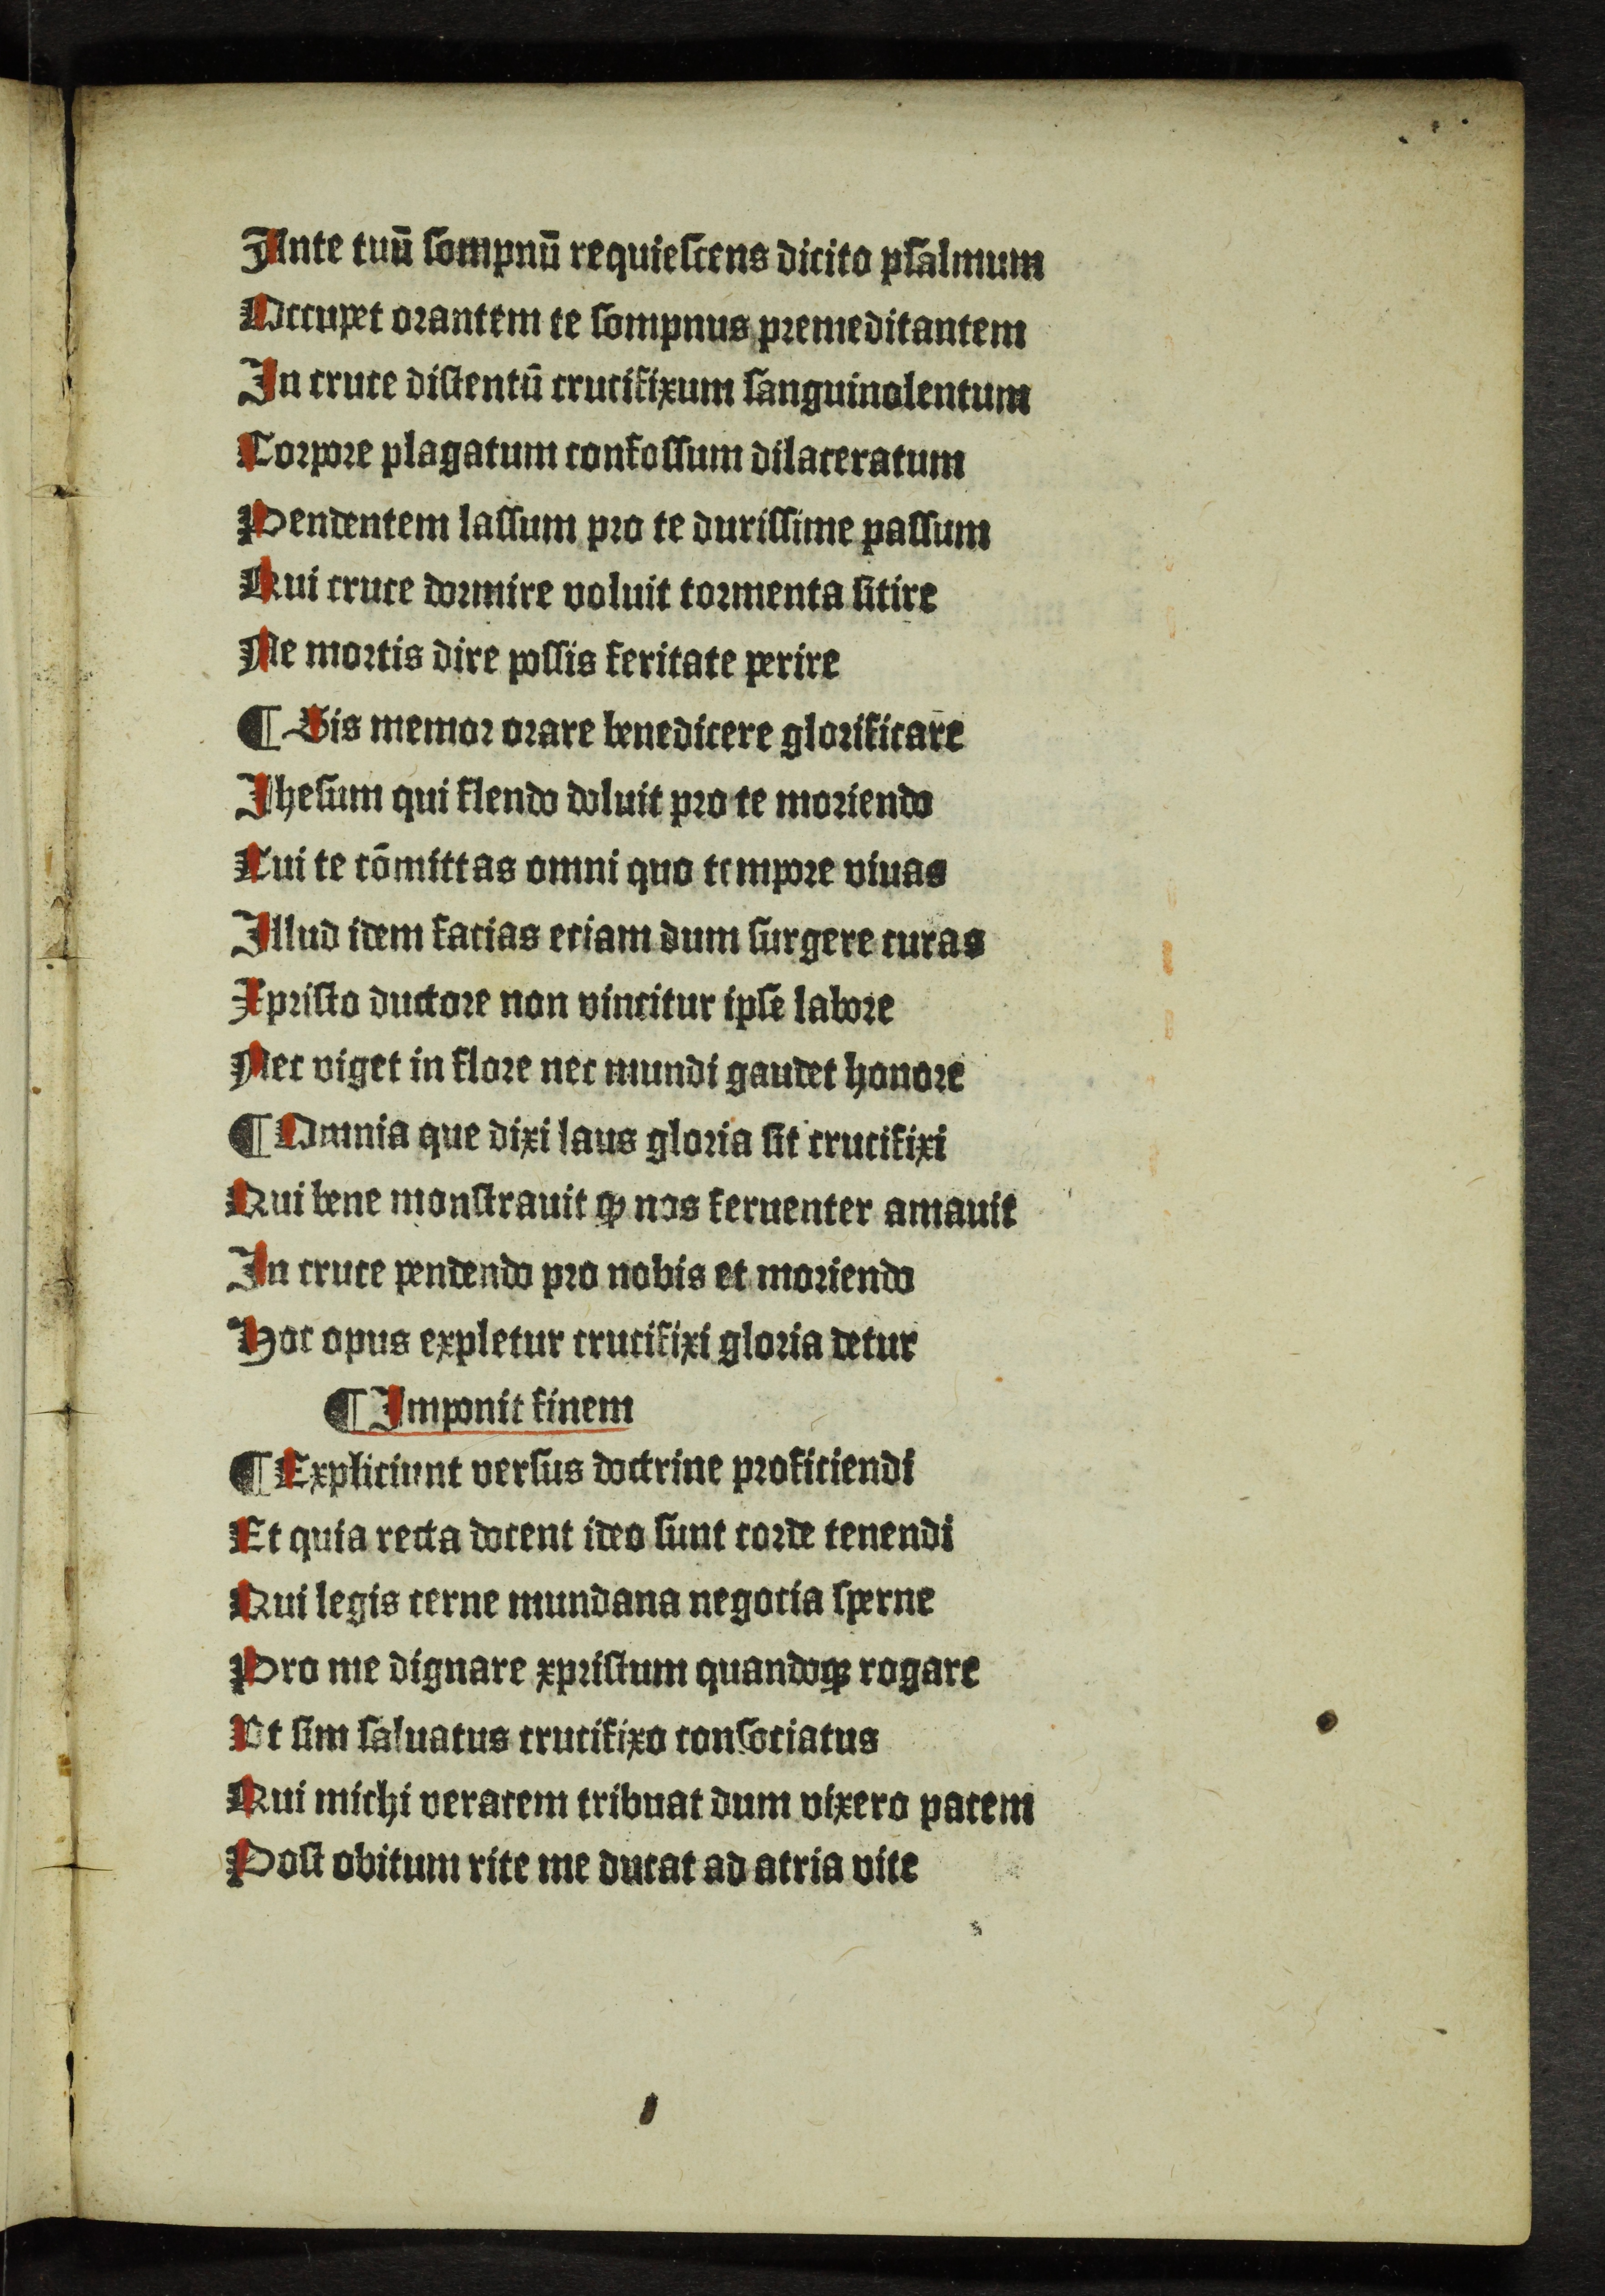 Ante tuū ſompnū requieſcens dicito pſalmum
Occupet orantem te ſompnus premeditantem
In cruce diſtentū crucifixum ſanguinolentum
Corpore plagatum confoſſum dilaceratum
Pendentem laſſum pro te duriſſime paſſum
Qui cruce dormire voluit tormenta ſitire
Ne mortis dire poſſis feritate perire
¶ Sis memor orare benedicere glorificare
Jheſum qui flendo doluit pro te moriendo
Cui te cōmittas omni quo tempore viuas
Illud idem facias eciam dum ſurgere curas
Xpriſto ductore non vincitur ipſe labore
Nec viget in flore nec mundi gaudet honore
¶ Omnia que dixi laus gloria ſit crucifixi
Qui bene monſtrauit ꝙ nos feruenter amauit
In cruce pendendo pro nobis et moriendo
Hoc opus expletur crucifixi gloria detur
¶ Imponit finem
¶ Expliciunt verſus doctrine proficiendi
Et quia recta docent ideo ſunt corde tenendi
Qui legis cerne mundana negocia ſperne
Pro me dignare xpriſtum quandoqꝫ rogare
Vt ſim ſaluatus crucifixo conſociatus
Qui michi veracem tribuat dum vixero pacem
Poſt obitum rite me ducat ad atria vite